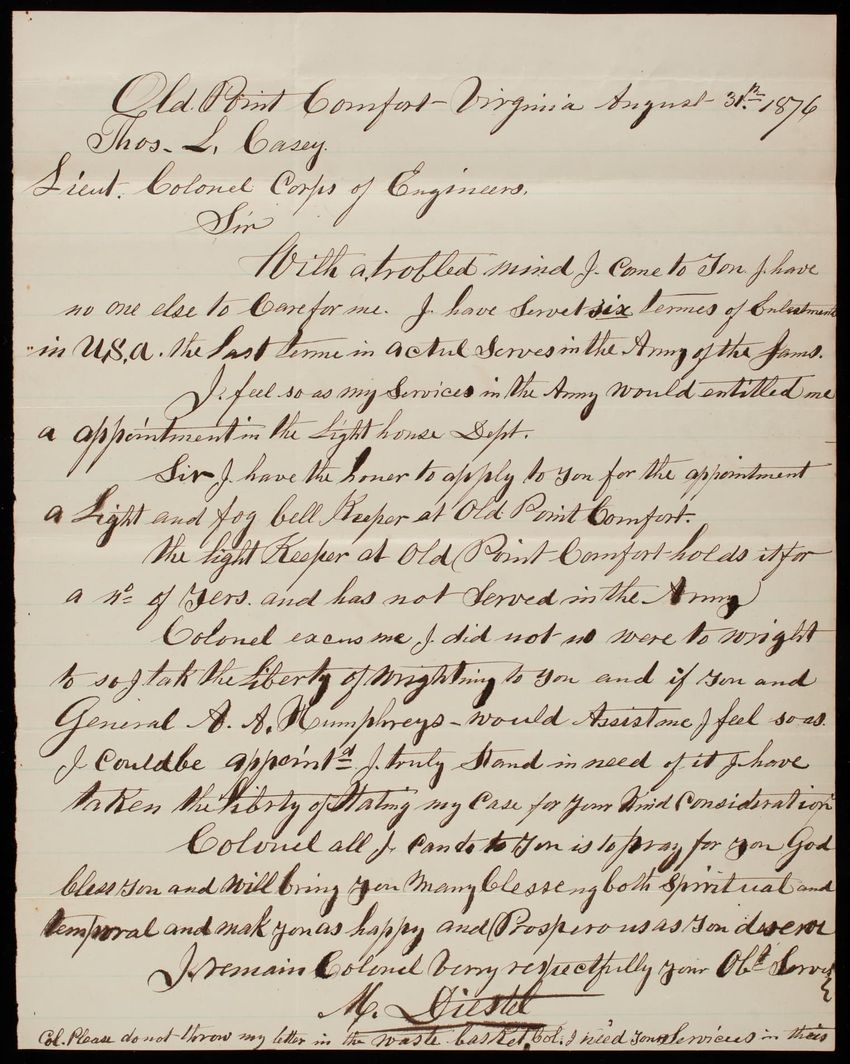 Old Point Comfort Virginia August 31th 1876
Thos. L. Casey.
Lieut. Colonel Corps of Engineers.
Sir
With a trobled mind I come to You I have
no one else to Care for me. I have Servet six termes of Enlistment
in U.S.A. the last terme in actul Serves in the Army of the James.
I feel so as my Services in the Army would entitled me
a appointment in the Light house Dept.
Sir I have the honer to apply to you for the appointment
a Light and fog bell Keeper at Old Point Comfort.
the light Keeper at Old Point Comfort holds it for
a nr of Yers. and has not Served in the Army
Colonel excus me I did not no were to wright
to so I tak the Liberty of Wrighting to you and if You and
General A. A. Humphreys - would Assist me I feel so as
I could be appointd I truly Stand in need of it I have
taken the liberty of Stating my Case for your kind Consideration
Colonel all I can do to You is to pray for you God
bless You and Will bring you Many blesseng both Spiritual and
temporal and mak you as happy and Prosperous as You deserve
I remain Colonel verry respectfully your Obt Servt
M. Diestel
Col. Please do not throw my letter in the waste basket, Col. I need your Services in theis